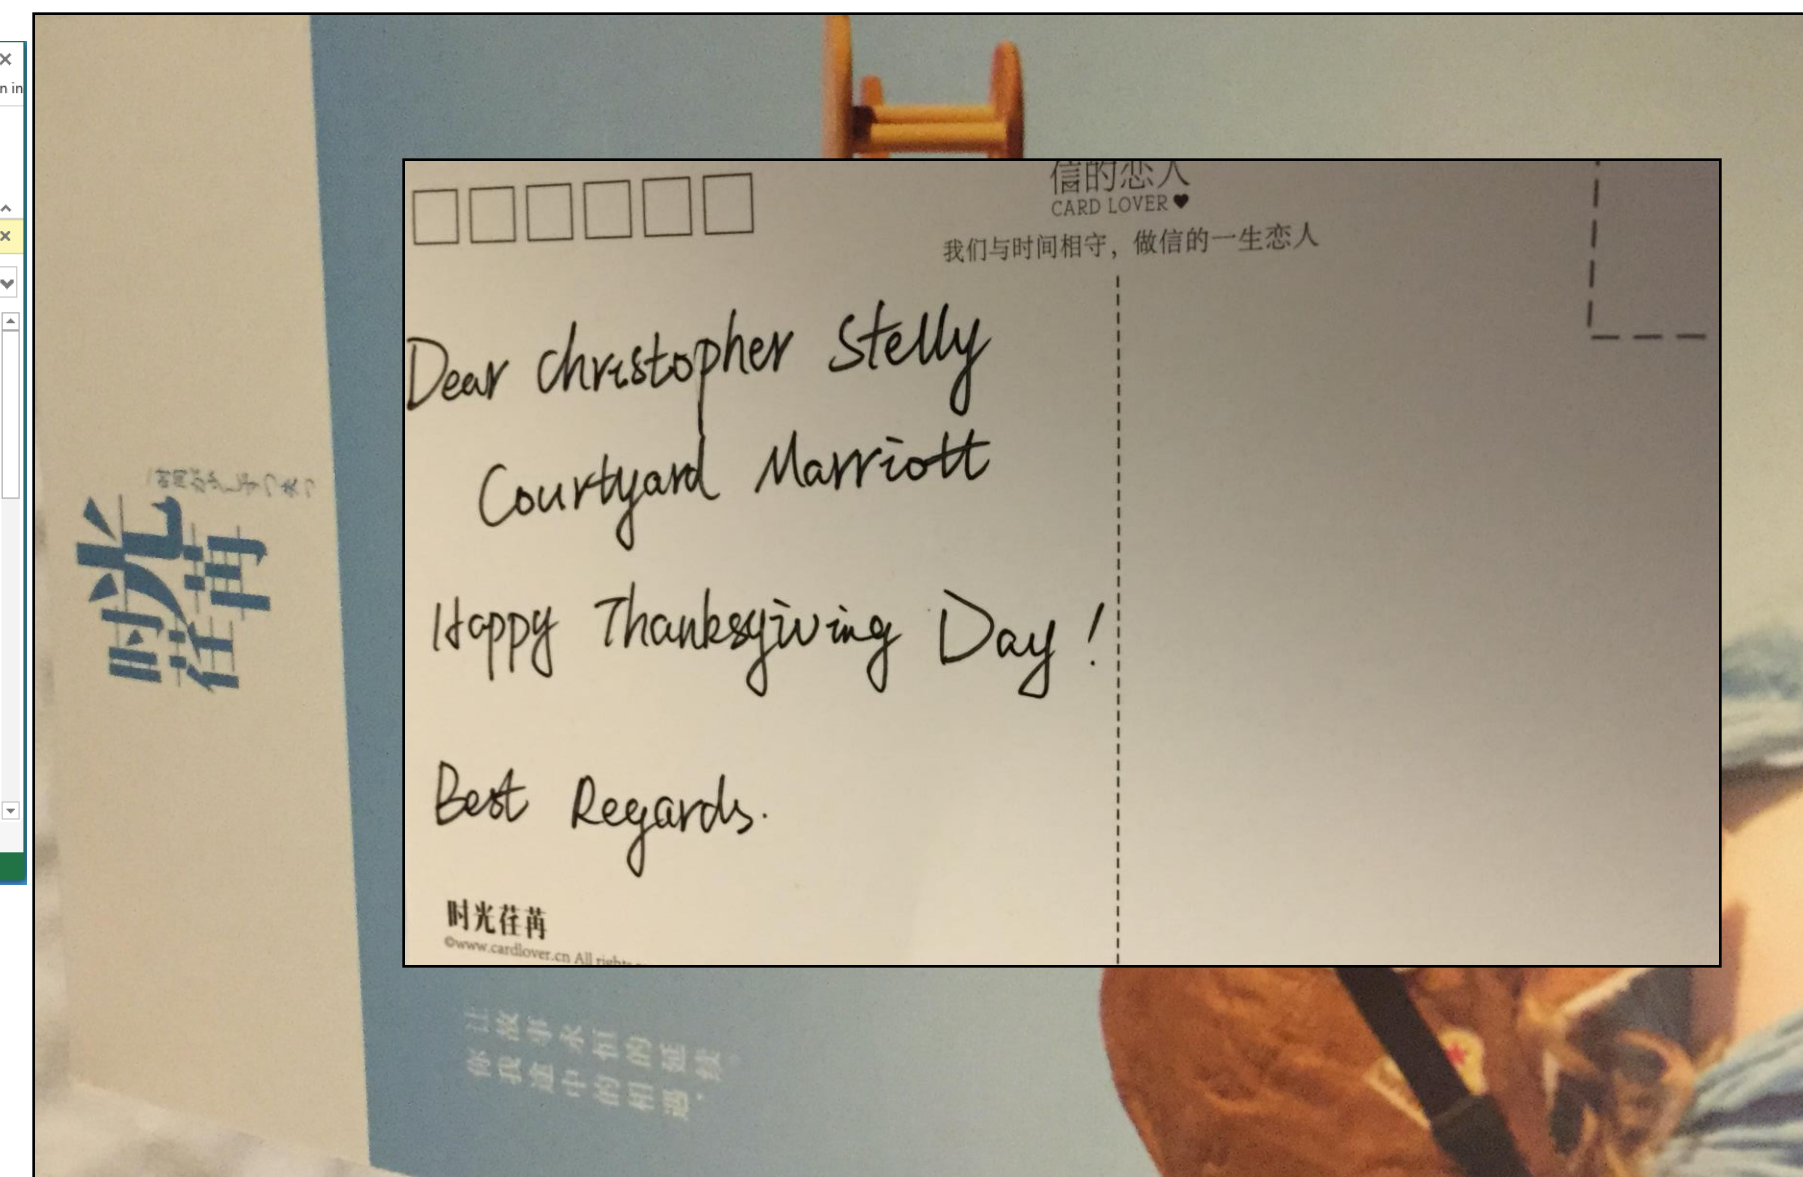 n in
信的恋人
CARD LOVER♥
我们与时间相守，做信的一生恋人
Dear Christopher Stelly
Courtyard Marriott
Happy Thanksgiving Day!
Best Regards.
时光荏苒
©www.cardlover.cn All rights
时光
荏苒
让故事永恒的延续。
你我途中的相遇，